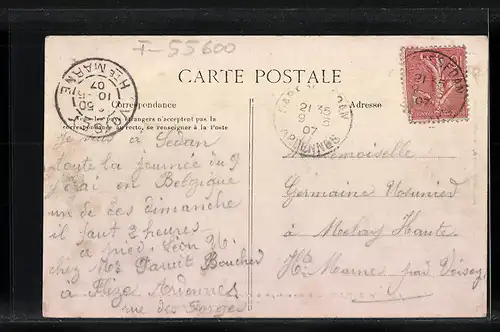 F-55600
CARTE POSTALE
Correspondance
Adresse
Tous les pays étrangers n'acceptent pas la
correspondance au recto, se renseigner à la Poste
HTE MARNE
10
07
GARE DE SEDAN
21 35
9 5
07
ARDENNES
SEDAN
21
07
Je suis à Sedan
toute la journée du 9
j'irai en Belgique
un de ces dimanche
il faut 2 heures
à pied. Léon N.
chez Mr Boucher
à Ardennes
rue des Forges
Mademoiselle
Germaine
à Melay Haute
Hte Marne par Voisey